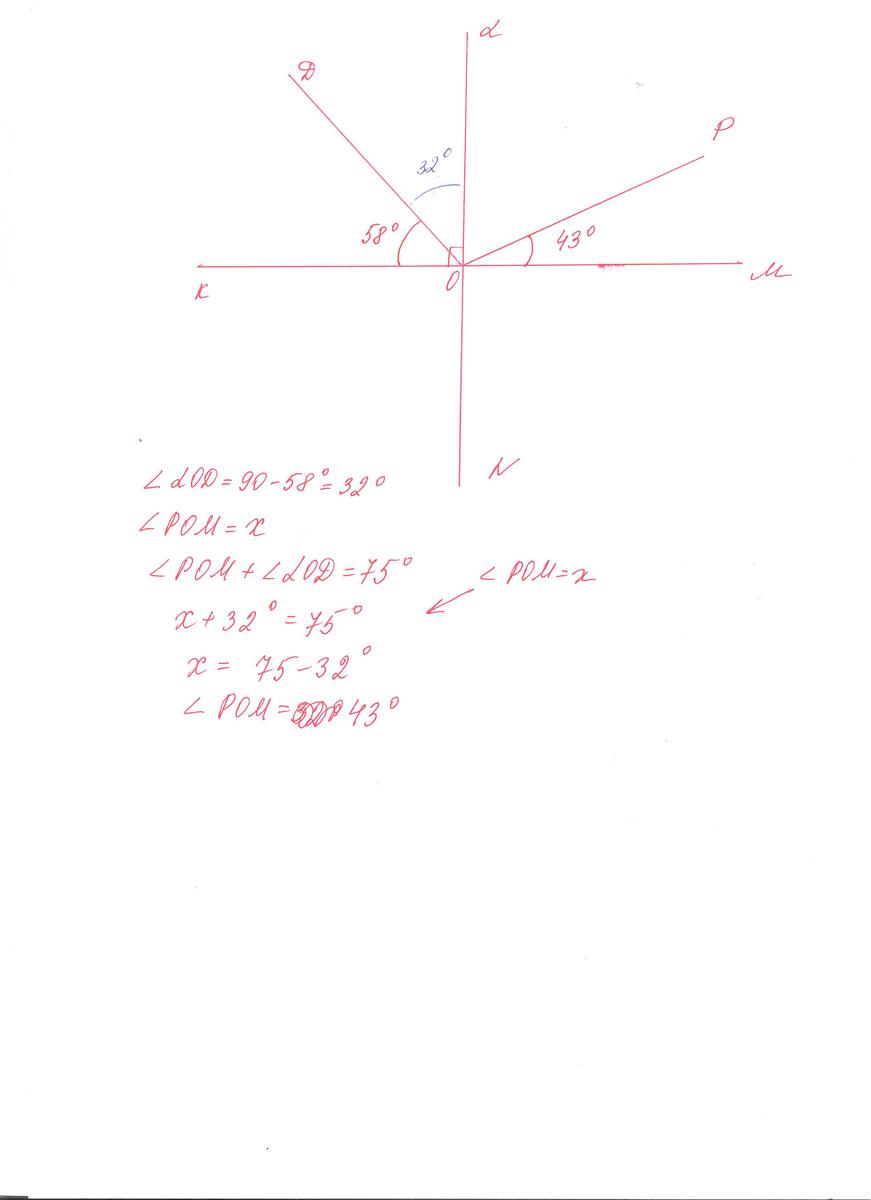 L
Д
P
32°
58°
43°
K
O
M
N
∠LOD = 90 - 58° = 32°
∠POM = x
∠POM + ∠LOD = 75°
∠POM = x
x + 32° = 75°
x = 75 - 32°
∠POM = 43°